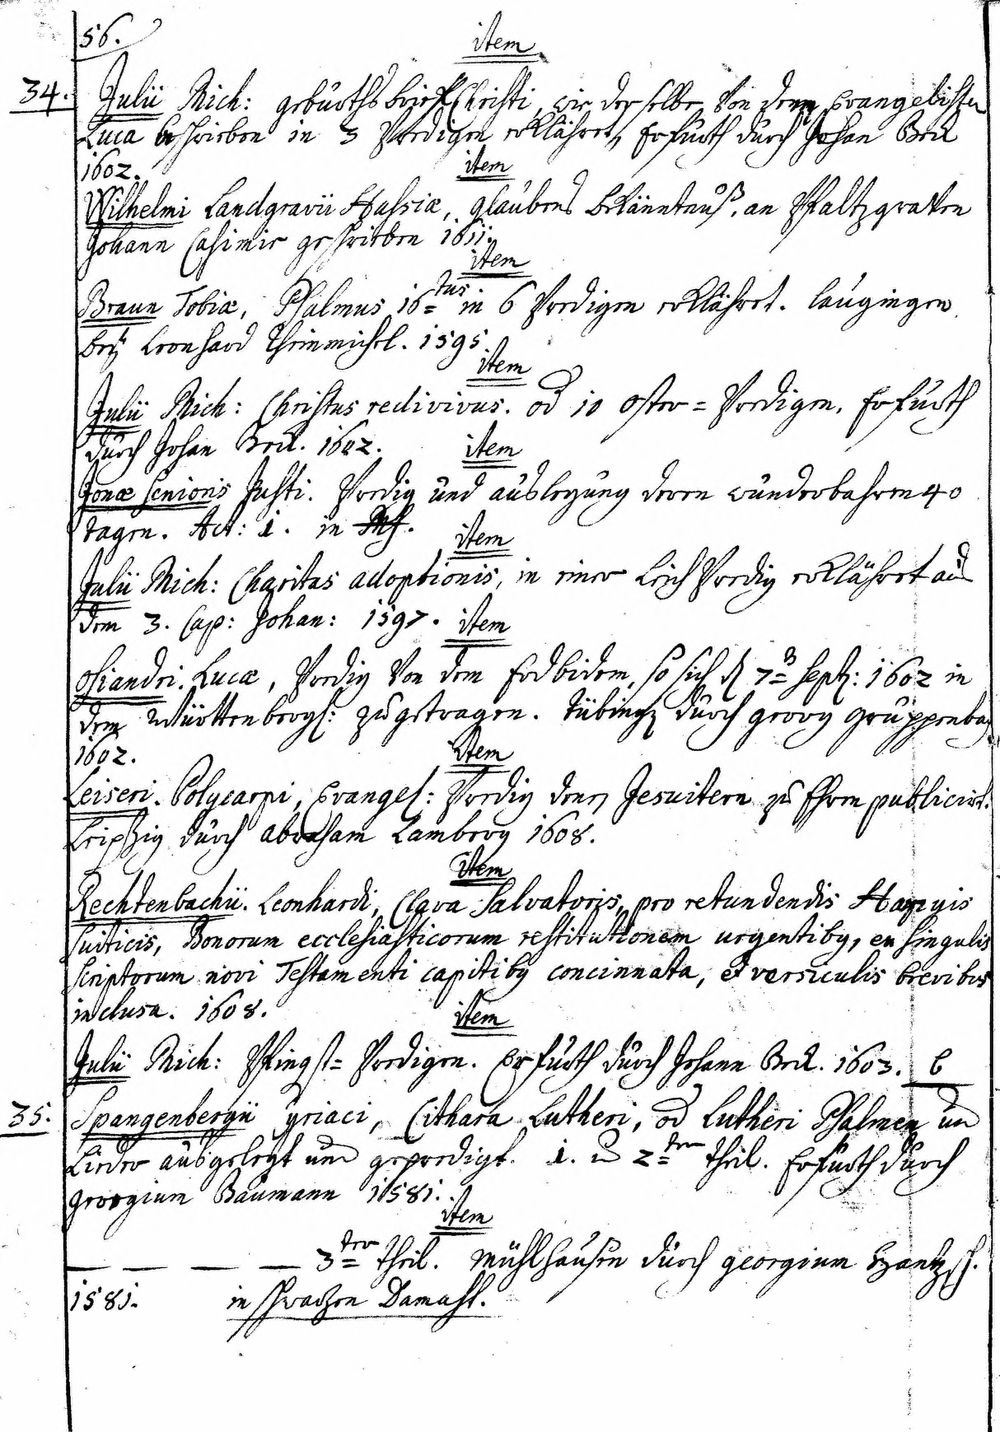 56.
item
34. Julii Mich: geburths brief Christi, wie derselbe von dem Evangelisten
Luca beschrieben in 3 Predigen erklähret, Erfurth durch Johan Beck
1602.
item
Wilhelmi Landgravii Hassiæ, glaubens bekänntnuß, an Pfaltzgrafen
Johann Casimir geschrieben 1611.
item
Braun Tobiæ, Psalmus 16=tus in 6 Predigen erklähret. Laugingen
bey Leonhard Rheinmichel. 1595.
item
Julii Mich: Christus redivivus. od 10 Oster= Predigen. Erfurth
durch Johan Beck. 1602.
item
Jonæ Senioris Justi. Predig und auslegung deren wunderbahren 40
tagen. Act: 1. in
item
Julii Mich: Charitas adoptionis, in einer Leich Predig erklähret aus
dem 3. Cap: Johan: 1597.
item
Osiandri. Lucæ, Predig von dem Erdbidem, so sich d 7= Sept: 1602 in
dem Württenberg: zugetragen. Tübing durch georg gruppenbach
1602.
item
Leiseri. Polycarpi, Evangel: Predig denen Jesuitern zu Ehren publicirt.
Leipzig durch Abraham Lamberg 1608.
item
Rechtenbachii. Leonhardi, Clava Salvatoris, pro retundendis Harpyis
suiticis, Bonorum ecclesiasticorum restitutionem urgentiby, en singulis
scriptorum novi Testamenti capitiby concinnata, et versiculis brevibus
inclusa. 1608.
item
Julii Mich: Pfingst= Predigen. Erfurth durch Johann Beck. 1603. 6
35. Spangenbergii Cyriaci, Cithara Lutheri, od Lutheri Psalmen und
Lieder ausgelegt und geprediget. 1. u 2=ter Theil. Erfurth durch
Georgium Baumann 1581.
item
— — — — 3=ter Theil. Mühlhausen durch georgium Hantzsch.
1581. in schwarzen Damast.